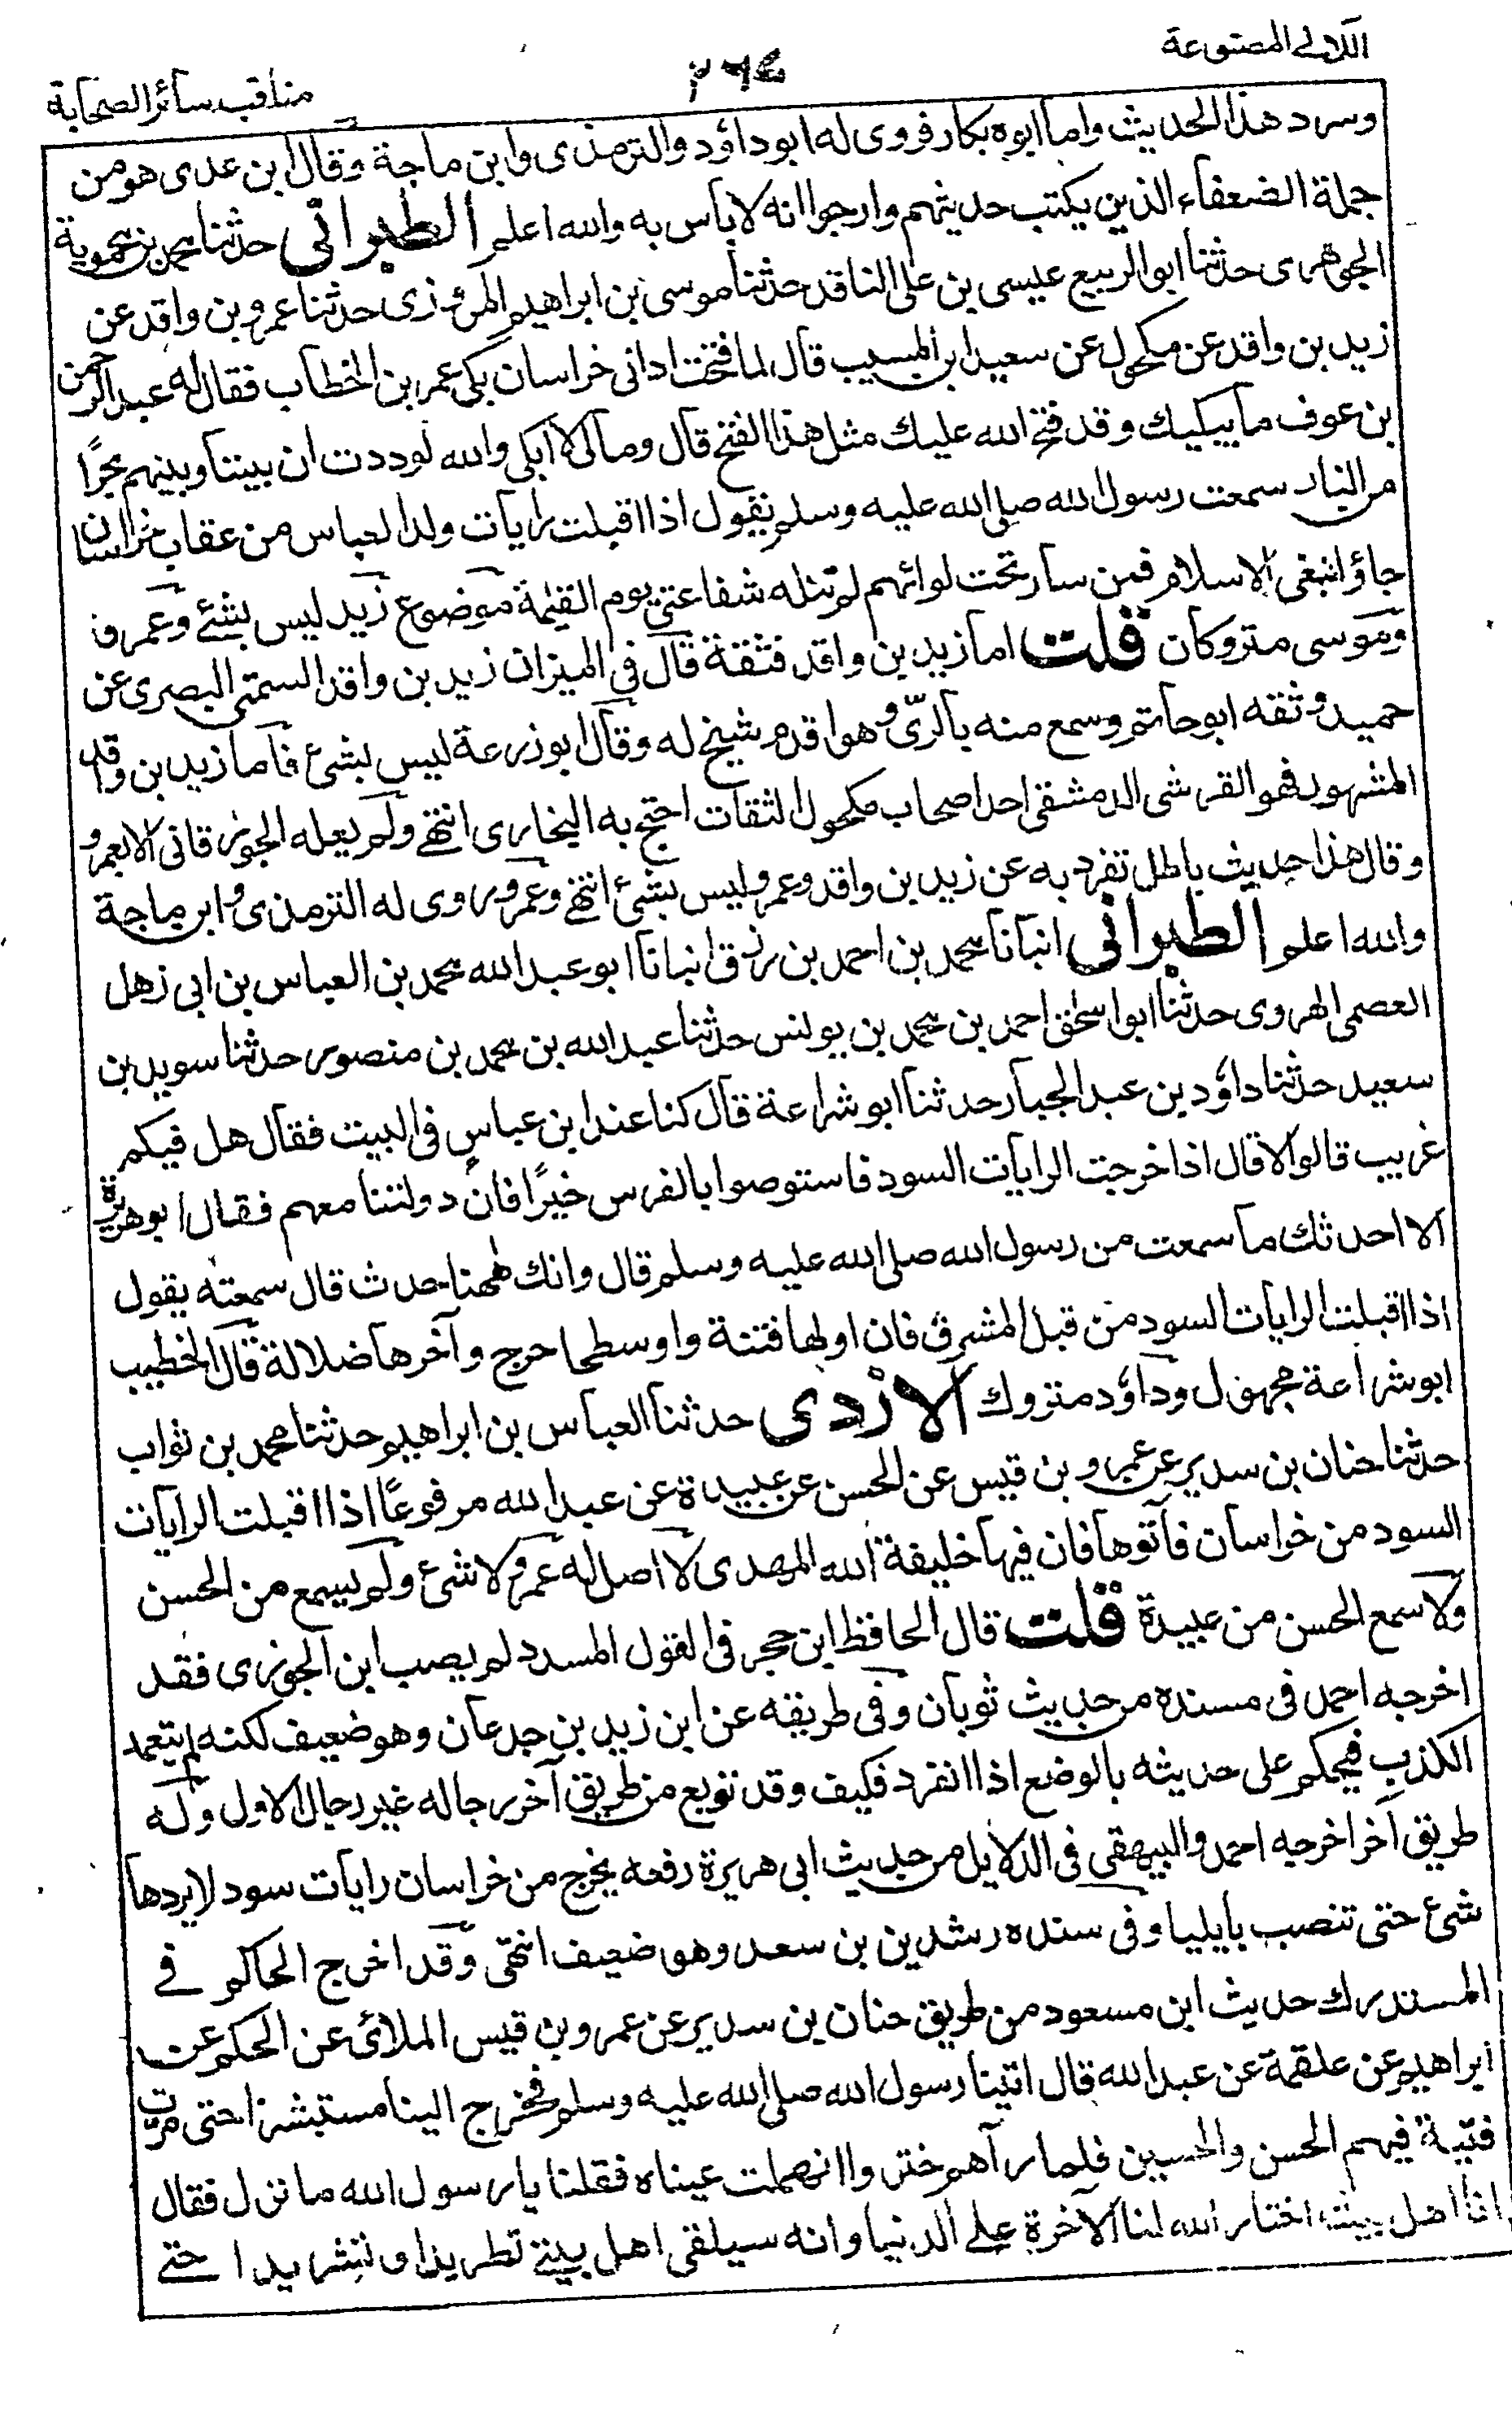 اللالى المصنوعة
٢٢٦
مناقب سائر الصحابة
وسرد هذا الحديث واما ابوه بكار فروى له ابو داؤد والترمذى وابن ماجة وقال ابن عدى هو من
جملة الضعفاء الذين يكتب حديثهم وارجوا انه لا باس به والله اعلم الطبرانى حدثنا محمد بن محموية
الجوهرى حدثنا ابو الربيع عيسى بن على الناقد حدثنا موسى بن ابراهيم المروزى حدثنا عمرو بن واقد عن
زيد بن واقد عن مكحول عن سعيد ابن المسيب قال لما فتحت ادانى خراسان بكى عمر بن الخطاب فقال له عبد الرحمن
بن عوف ما يبكيك وقد فتح الله عليك مثل هذا الفتح قال ومالى لا ابكى والله لوددت ان بيننا وبينهم بحرًا
من النار سمعت رسول الله صلى الله عليه وسلم يقول اذا اقبلت رايات ولد العباس من عقاب خراسان
جاؤا بنغى الاسلام فمن سار تحت لوائهم لم تنله شفاعتى يوم القيمة موضوع زيد ليس بشئ وعمرو
وموسى متروكان قلت اما زيد بن واقد فثقة قال فى الميزان زيد بن واقد السمتى البصرى عن
حميد وثقه ابو حاتم وسمع منه بالرىّ وهو اقدم شيخ له وقال ابو زرعة ليس بشئ فاما زيد بن واقد
المشهور فهو القرشى الدمشقى احد اصحاب مكحول الثقات احتج به البخارى انتهى ولم يعله الجوزقانى الا بعمرو
وقال هذا حديث باطل تفرد به عن زيد بن واقد وعمرو ليس بشئ انتهى وعمرو روى له الترمذى وابن ماجة
والله اعلم الطبرانى انبانا محمد بن احمد بن رزق انبانا ابو عبد الله محمد بن العباس بن ابى زهل
العصمى الهروى حدثنا ابو اسحق احمد بن محمد بن يونس حدثنا عبد الله بن محمد بن منصور حدثنا سويد بن
سعيد حدثنا داؤد بن عبد الجبار حدثنا ابو شراعة قال كنا عند ابن عباس فى البيت فقال هل فيكم
غريب قالوا لا قال اذا خرجت الرايات السود فاستوصوا بالفرس خيرًا فان دولتنا معهم فقال ابو هريرة
الا احدثك ما سمعت من رسول الله صلى الله عليه وسلم قال وانك ههنا حدث قال سمعته يقول
اذا اقبلت الرايات السود من قبل المشرق فان اولها فتنة واوسطها حرج وآخرها ضلالة قال الخطيب
ابو شراعة مجهول وداؤد متروك الازدى حدثنا العباس بن ابراهيم حدثنا محمد بن ثواب
حدثنا حنان بن سدير عن عمرو بن قيس عن الحسن عن عبيدة عن عبد الله مرفوعًا اذا اقبلت الرايات
السود من خراسان فآتوها فان فيها خليفة الله المهدى لا اصل له عمرو لا شئ ولم يسمع من الحسن
ولا سمع الحسن من عبيدة قلت قال الحافظ ابن حجر فى القول المسدد لم يصب ابن الجوزى فقد
اخرجه احمد فى مسنده من حديث ثوبان وفى طريقه عن ابن زيد بن جدعان وهو ضعيف لكنه لم يتعمد
الكذب فيحكم على حديثه بالوضع اذا انفرد فكيف وقد توبع من طريق آخر رجاله غير رجال الاول وله
طريق آخر اخرجه احمد والبيهقى فى الدلايل من حديث ابى هريرة رفعه يخرج من خراسان رايات سود لا يردها
شئ حتى تنصب بايليا وفى سنده رشدين بن سعد وهو ضعيف انتهى وقد اخرج الحاكم فى
المستدرك حديث ابن مسعود من طريق حنان بن سدير عن عمرو بن قيس الملائى عن الحكم عن
ابراهيم عن علقمة عن عبد الله قال اتينا رسول الله صلى الله عليه وسلم فخرج الينا مستبشرا حتى مرت
فتية فيهم الحسن والحسين فلما رآهم خثر وانهملت عيناه فقلنا يا رسول الله ما نزل فقال
انا اهل بيت اختار الله لنا الآخرة على الدنيا وانه سيلقى اهل بيتى تطريدا وتشريدا حتى